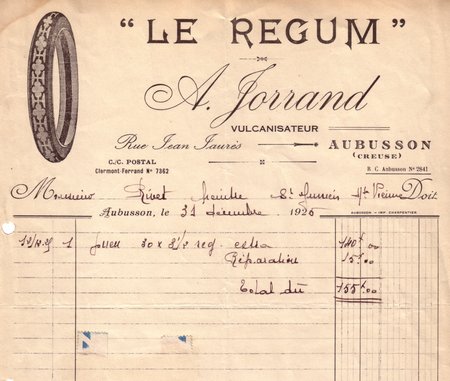 "LE REGUM"
A. Jorrand
VULCANISATEUR
Rue Jean Jaurès
AUBUSSON
(CREUSE)
C/C. POSTAL
Clermont-Ferrand N° 7362
R C Aubusson N° 2841
Monsieur Rivet St Hte Vienne Doit
Aubusson, le 31 décembre 1925
AUBUSSON - IMP CHARPENTIER
1 pneu 30 x 3 1/2 reg. extra 140f.00
Réparation 15f.00
Total dû 155f.00